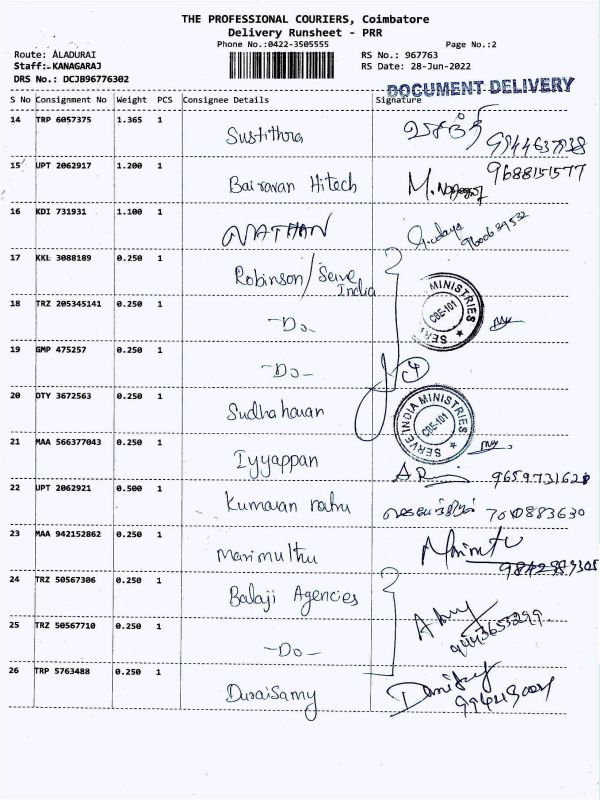 THE PROFESSIONAL COURIERS, Coimbatore
Delivery Runsheet - PRR
Phone No.:0422-3505555 Page No.:2
Route: ALADURAI RS No.: 967763
Staff:- KANAGARAJ RS Date: 28-Jun-2022
DRS No.: DCJB96776302
DOCUMENT DELIVERY
S No Consignment No Weight PCS Consignee Details Signature
14 TRP 6057375 1.365 1
Susithra
15 UPT 2062917 1.200 1 9688151577
Bairavan Hitech
16 KDI 731931 1.100 1
NATHAN 9600639532
17 KKL 3088189 0.250 1
Robinson/Serve India
18 TRZ 205345141 0.250 1
-Do-
SERVE INDIA MINISTRIES
CBE-101
19 GMP 475257 0.250 1
-Do- 4
20 DTY 3672563 0.250 1
Sudhaharan
SERVE INDIA MINISTRIES
CBE-101
21 MAA 566377043 0.250 1
Iyyappan
22 UPT 2062921 0.500 1
Kumaran 7010883630
23 MAA 942152862 0.250 1
Marimuthu
24 TRZ 50567306 0.250 1
Balaji Agencies
25 TRZ 50567710 0.250 1
-Do- 9443655299
26 TRP 5763488 0.250 1
DuraiSamy